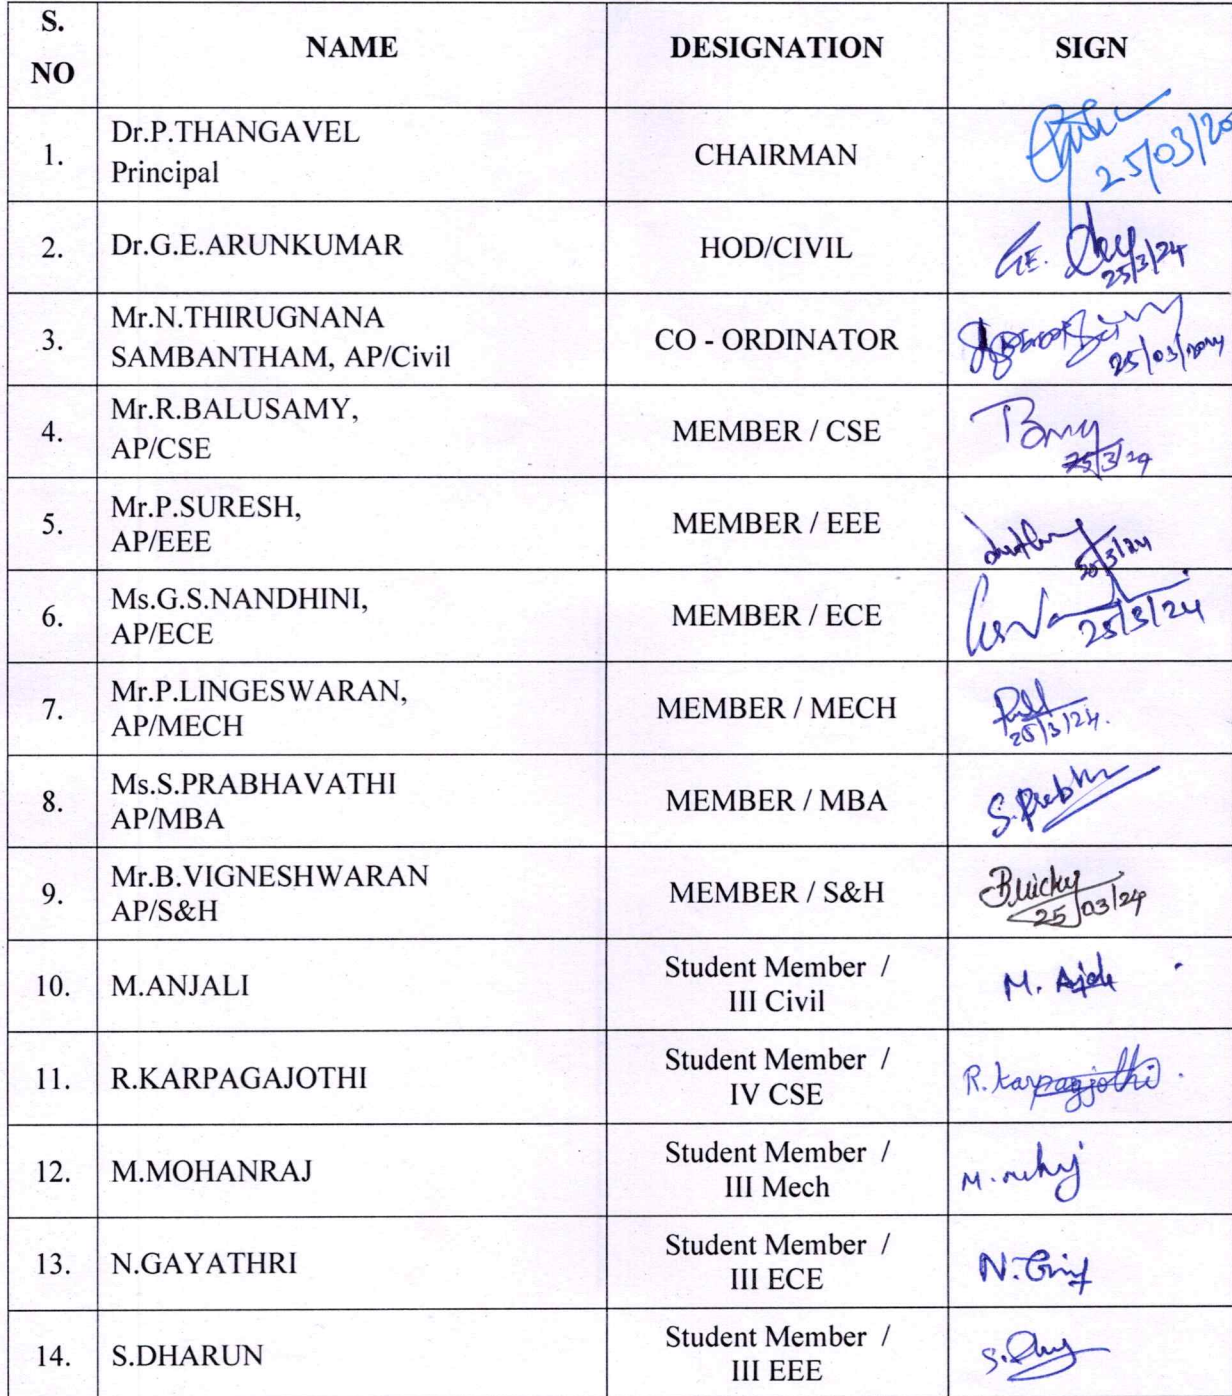 S.
NO
NAME
DESIGNATION
SIGN
1.
Dr.P.THANGAVEL
Principal
CHAIRMAN
25/03/20
2.
Dr.G.E.ARUNKUMAR
HOD/CIVIL
GE.
25/3/24
3.
Mr.N.THIRUGNANA
SAMBANTHAM, AP/Civil
CO - ORDINATOR
25/03/2024
4.
Mr.R.BALUSAMY,
AP/CSE
MEMBER / CSE
25/3/24
5.
Mr.P.SURESH,
AP/EEE
MEMBER / EEE
25/3/24
6.
Ms.G.S.NANDHINI,
AP/ECE
MEMBER / ECE
25/3/24
7.
Mr.P.LINGESWARAN,
AP/MECH
MEMBER / MECH
25/3/24.
8.
Ms.S.PRABHAVATHI
AP/MBA
MEMBER / MBA
S.Prabha
9.
Mr.B.VIGNESHWARAN
AP/S&H
MEMBER / S&H
B.Vicky
25/03/24
10.
M.ANJALI
Student Member /
III Civil
M.
11.
R.KARPAGAJOTHI
Student Member /
IV CSE
R.Karpagjothi.
12.
M.MOHANRAJ
Student Member /
III Mech
M.
13.
N.GAYATHRI
Student Member /
III ECE
N.
14.
S.DHARUN
Student Member /
III EEE
S.